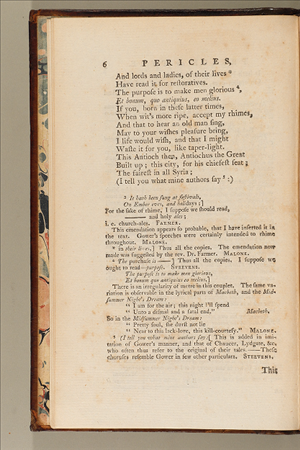 6 PERICLES,
And lords and ladies, of their lives
Have read it for restoratives.
The purpose is to make men glorious
Et bonum, quo antiquius, eo melius.
If you, born in these latter times,
When wit's more ripe, accept my rhimes,
And that to hear an old man sing,
May to your wishes pleasure bring,
I life would wish, and that I might
Waste it for you, like taper-light.
This Antioch then, Antiochus the Great
Built up; this city, for his chiefest seat;
The fairest in all Syria;
(I tell you what mine authors say :)
It hath been sung at festivals,
On Ember eves, and holidays;]
For the sake of rhime, I suppose we should read,
and holy ales;
I. e. church-ales. FARMER.
This emendation appears so probable, that I have inserted it in
the text. Gower's speeches were certainly intended to rhime
throughout. MALONE.
Thus all the copies. The emendation now
made was suggested by the rev. Dr. Farmer. MALONE.
The purchase is —] Thus all the copies. I suppose we
ought to read—purpose. STEEVENS.
The purpose is to make men glorious,
Et bonum quo antiquius eo melius.]
There is an irregularity of metre in this couplet. The same va-
riation is observable in the lyrical parts of Macbeth, and the Mid-
summer Night's Dream:
" I am for the air; this night I'll spend
" Unto a dismal and a fatal end." Macbeth.
So in the Midsummer Night's Dream:
" Pretty soul, she durst not lie
" Near to this lack-love, this kill-courtesy." MALONE.
(I tell you what mine authors say.] This is added in imi-
tation of Gower's manner, and that of Chaucer, Lydgate, &c.
who often thus refer to the original of their tales.—These
chorusses resemble Gower in few other particulars. STEEVENS.
This